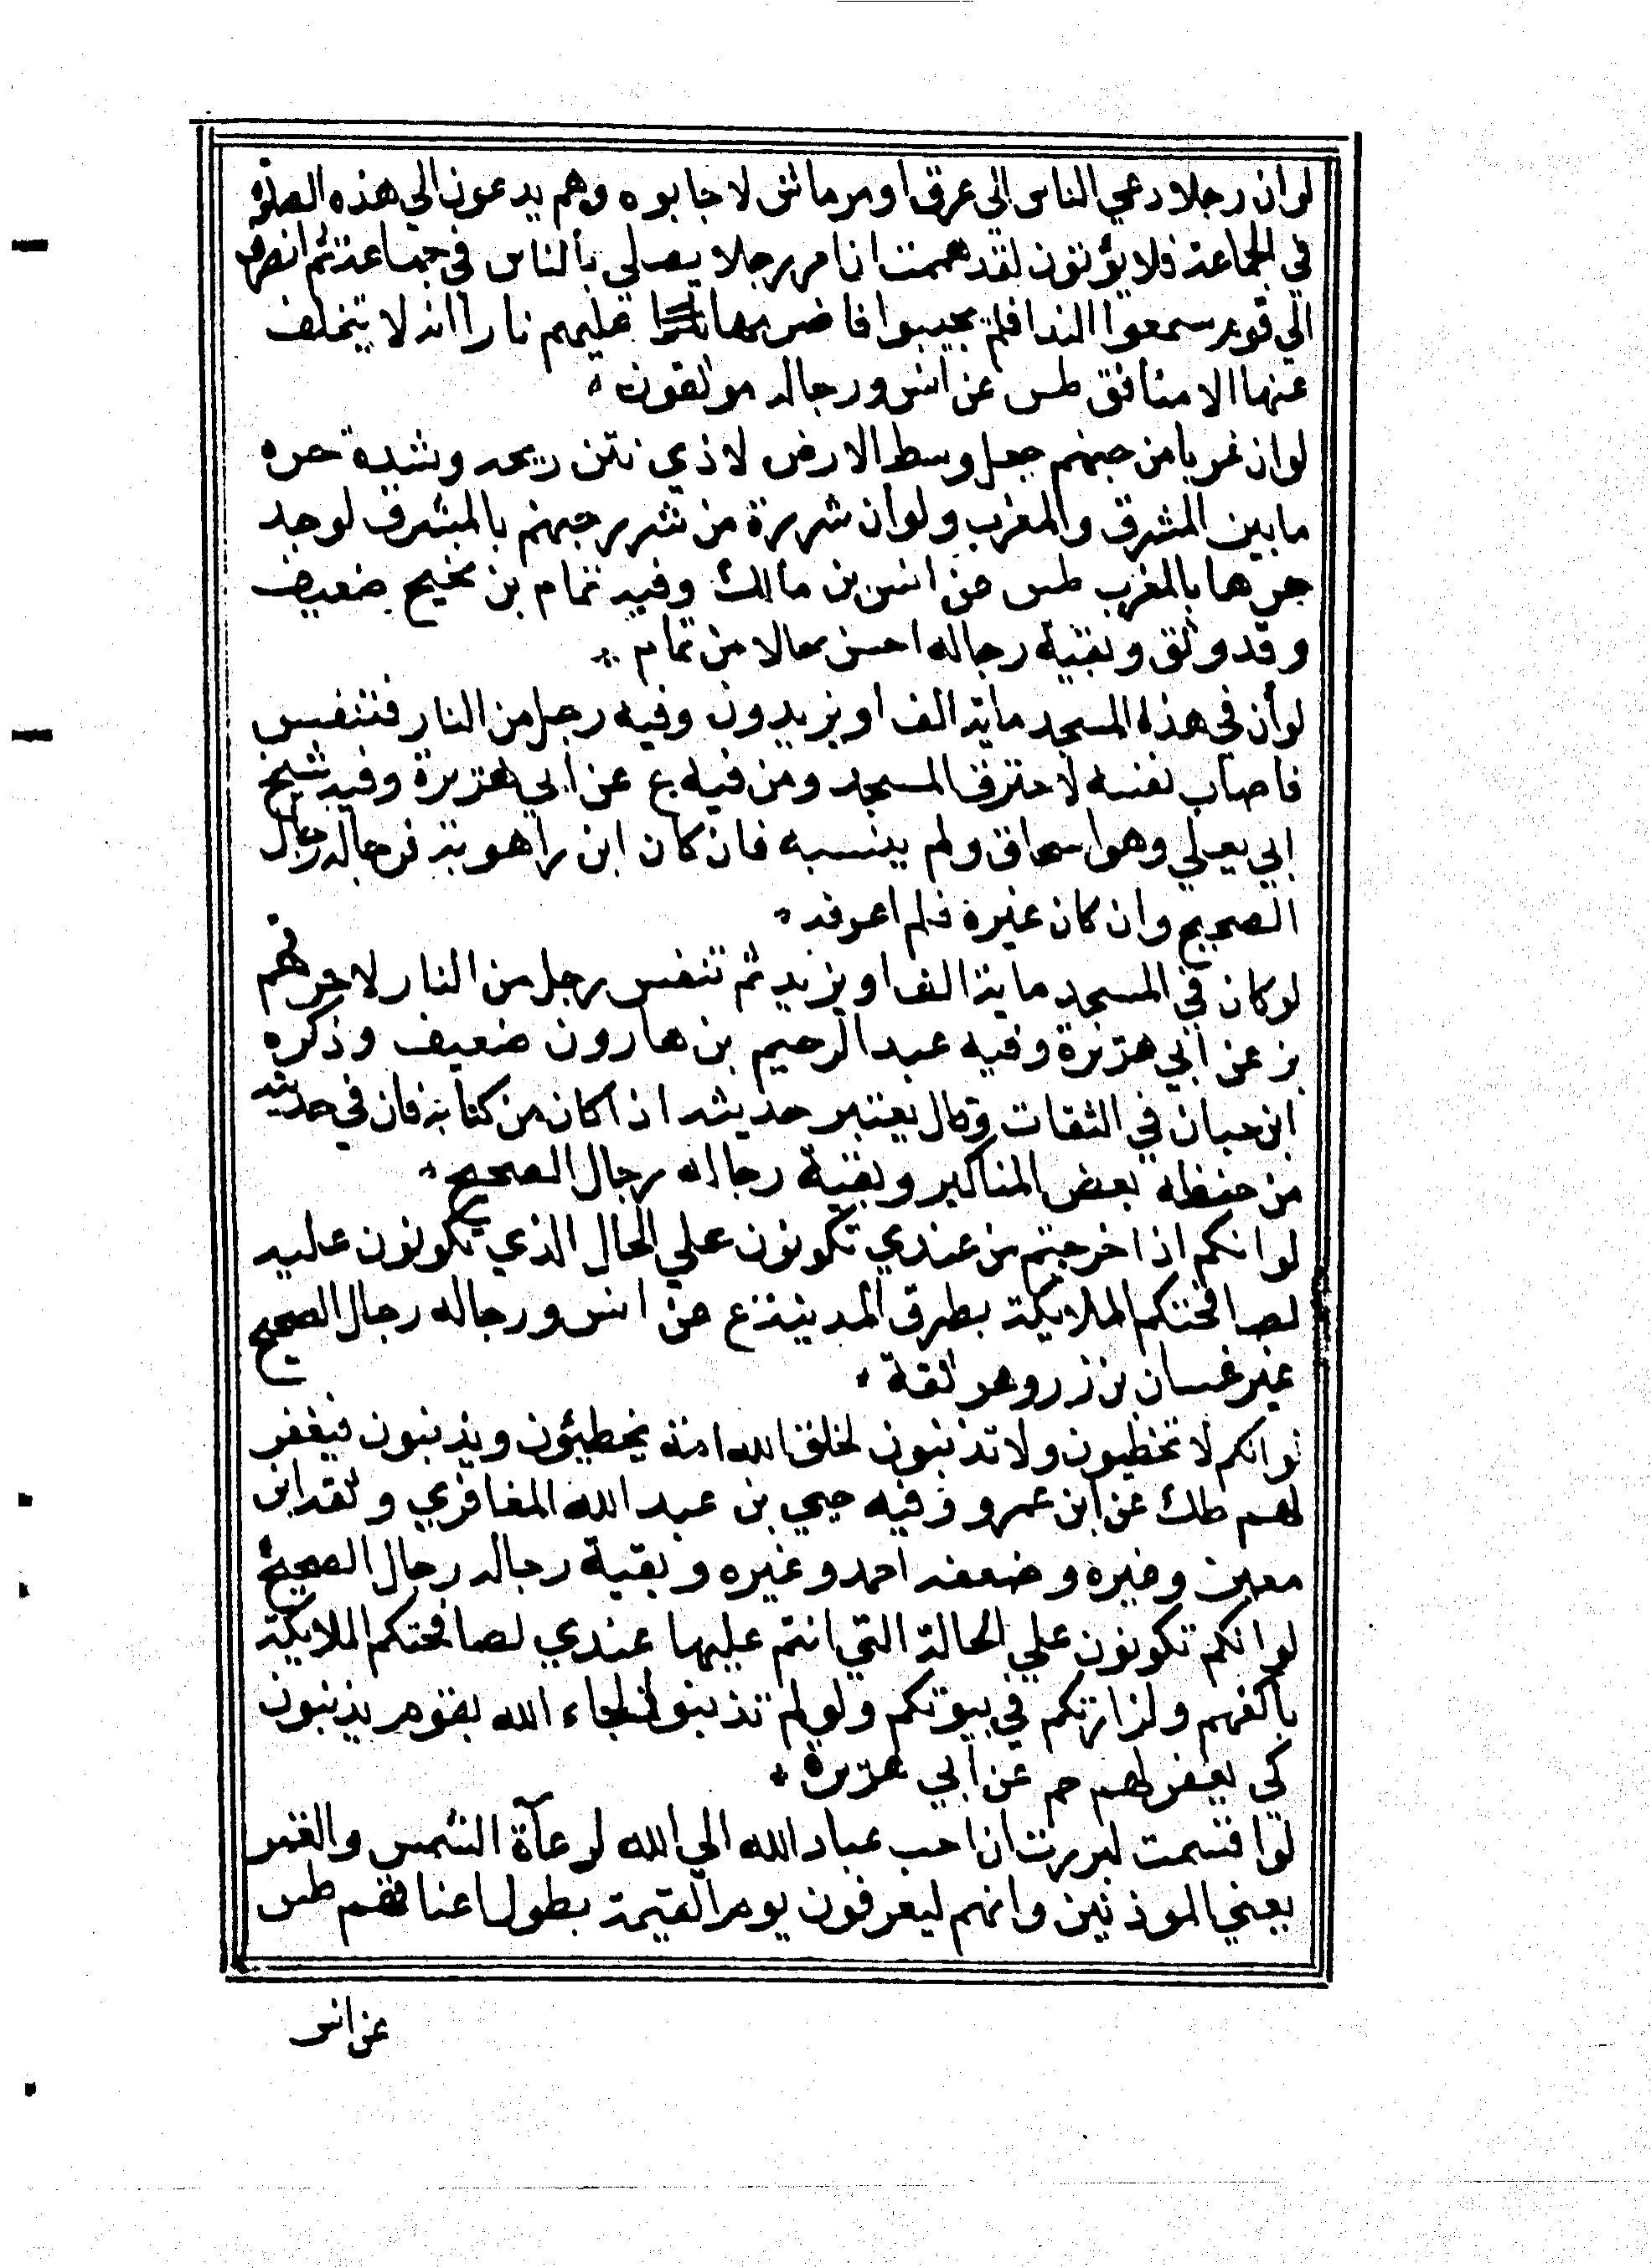 لوان رجلا دعي الناس الي عرق او مرماتين لاجابوه وهم يدعون الي هذه الصلوة
في الجماعة فلا يؤتون لقد هممت ان امر رجلا يصلي بالناس في جماعة ثم انصرف
الي قوم سمعوا الندا فلم يجيبوا فاضرمها عليهم نارا انه لا يتخلف
عنها الا منافق طس عن انس ورجاله موثقون
لوان غربا من جهنم جعل وسط الارض لاذي نتن ريحه وشدة حره
ما بين المشرق والمغرب ولو ان شررة من شرر جهنم بالمشرق لوجد
حرها بالمغرب طس عن انس بن مالك وفيه تمام بن نجيح ضعيف
وقد وثق وبقية رجاله احسن حالا من تمام
لو أن في هذا المسجد ماية الف او يزيدون وفيه رجل من النار فتنفس
فاصاب نفسه لاحترق المسجد ومن فيه ع عن ابي هريرة وفيه شيخ
ابي يعلي وهو اسحاق ولم ينسبه فان كان ابن راهوية فرجاله رجال
الصحيح وان كان غيره فلم اعرفه
لوكان في المسجد ماية الف او يزيد ثم تنفس رجل من النار لاحرقهم
بز عن ابي هريرة وفيه عبد الرحيم بن هارون ضعيف وذكره
ابن حبان في الثقات وقال يعتبر حديثه اذا كان من كتابه فان في حديثه
من حفظه بعض المناكير وبقية رجاله رجال الصحيح
لوانكم اذا خرجتم من عندي تكونون علي الحال الذي تكونون عليه
لصافحتكم الملايكة بطرق المدينة ع عن انس ورجاله رجال الصحيح
غير غسان بن زر وهو ثقة
لوانكم لا تخطيون ولا تذنبون لخلق الله امة يخطيؤن ويذنبون فيغفر
لهم طك عن ابن عمرو وفيه حيي بن عبد الله المغافري وثقه ابن
معين وغيره وضعفه احمد وغيره وبقية رجاله رجال الصحيح
لوانكم تكونون علي الحالة التي انتم عليها عندي لصافحتكم الملايكة
باكفهم ولزارتكم في بيوتكم ولو لم تذنبوا لجاء الله بقوم يذنبون
كي يغفر لهم حم عن ابي هريرة
لو اقسمت لبررت ان احب عباد الله الي الله لرعآة الشمس والقمر
يعني الموذنين وانهم ليعرفون يوم القيمة بطول اعناقهم طس
عن انس